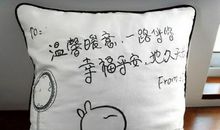 To:
温馨暖意,一路伴随
幸福平安,地久天长
From: